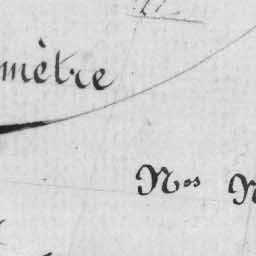 mètre
Nos